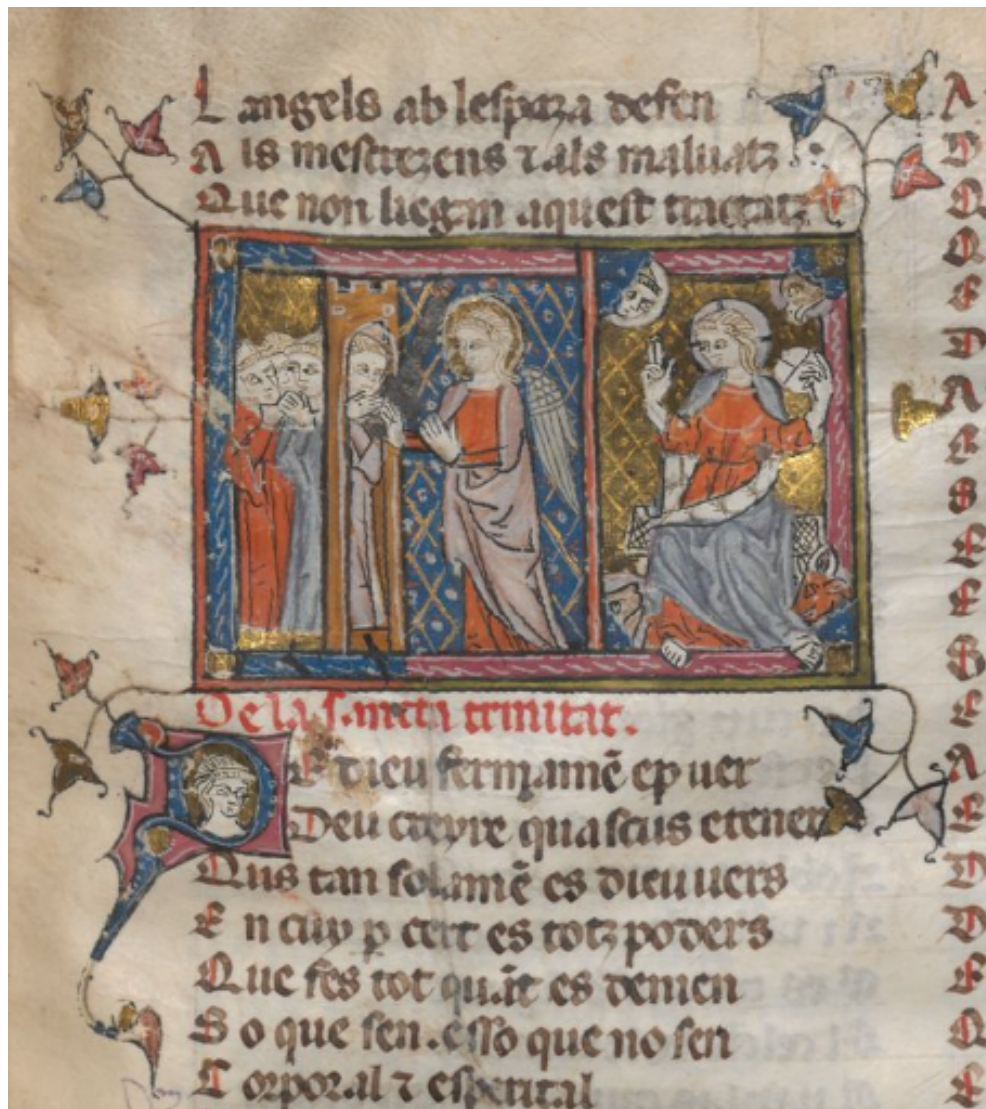 L angels ab lespaza defen
A ls mescrezens ⁊ als maluatz
Que non liegan aquest tractatz
De la sancta trinitat.
PE dieu fermamẽ ep uer
Deu creyre quascus e tener
Qus tan solamẽ es dieu uers
E n cuy p cert es totz poders
Que fes tot quãt es de nien
S o que sen. esso que no sen
C orporal ⁊ esperital
A
D
Q
Q
E
D
A
E
S
E
E
G
E
A
E
D
D
E
Q
E